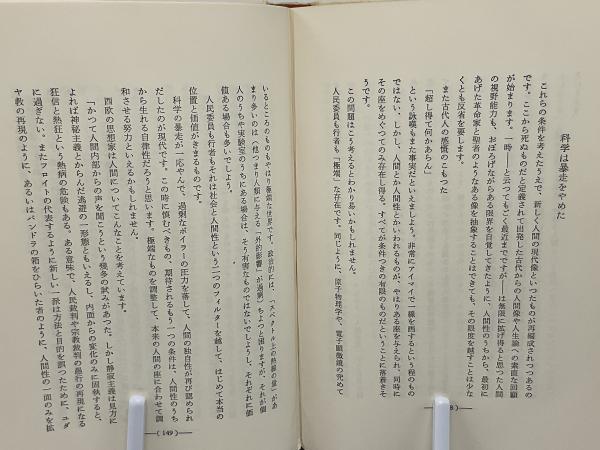 科学は暴走をやめた
これらの条件を考えたうえで、新しく人間の現代像といったものが再編成されつつあるの
です。ここから死ぬものだと定義されて出発した古代からの人間像や人生論への素直な回顧
が始まります。一時——と云つてもごく最近までですが——は無限に拡げ得ると思つた人間
の視野能力も、おぼろげながらある限界を自覚してきたように、人間性のうちから、最初に
あげた革命家と聖者のようなある像を抽象することはできても、その限度を越すことは少な
くとも反省を要します。
また古代人の感慨のこもつた
「超し得て何かあらん」
という詠嘆もまた事実だといえましよう。非常にアイマイで一線を画するという程のもの
ではない。しかし、人間とか人間性とかいわれるものが、やはりある座を与えられ、同時に
その座をめぐつてのみ存在し得る。すべてが条件つきの有限のものだということに落着きそ
うです。
この問題はこう考えるとわかり易いかもしれません。
人民委員も行者も「極端」な存在です。同じように、原子物理学や、電子顕微鏡の究めて
8)—
いるところのものもやはり極端な世界です。政治的には、「スペクトル上の熱線の量」があ
まり多いのは(他つまり人類に与える「外的影響」が過剰)ちよつと困りますが、それが個
人のうちや実験室のうちにある場合は、そう有害なものではないでしようし、それぞれに価
値ある場合も多いでしよう。
人民委員も行者もそれは社会と人間性という二つのフィルターを越して、はじめて本当の
位置と価値がきまるものです。
科学の暴走が一応やんで、過剰なボイラーの圧力を落して、人間の独自性が再び認められ
だしたのが現代です。この時に慎むべきもの、期待されるもう一つの条件は、人間性のうち
から生れる自律性だろうと思います。極端なものを調整して、本来の人間の座に合わせて調
和させる努力といえるかもしれません。
西欧の思想家は人間についてこんなことを考えています。
「かつて人間内部からの声を聞こうという幾多の試みがあつた。しかし静寂主義は見方に
よれば神秘主義とからんだ逃避の一形態ともいえるし、内面からの変化のみに固執すると、
狂信と熱狂という熱病の危険もある。ある意味で、人民裁判や宗教裁判の愚行の再現になる
に過ぎない。またフロイトの代表するように新しい一派は方法と目的を誤つたために、ユダ
ヤ教の再現のように、あるいはパンドラの箱をひらいた者のように、人間性の一面のみを拡
—(149)—